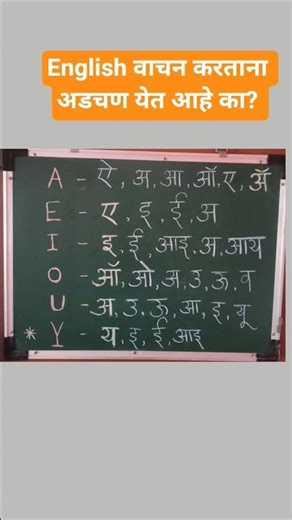 English वाचन करताना
अडचण येत आहे का?
A - ऐ, अ, आ, ऑ, ए, ॲ
E - ए, इ, ई, अ
I - इ, ई, आइ, अ, आय
O - ऑ, ओ, अ, उ, ऊ, व
U - अ, उ, ऊ, आ, इ, यू
* Y - य, इ, ई, आइ